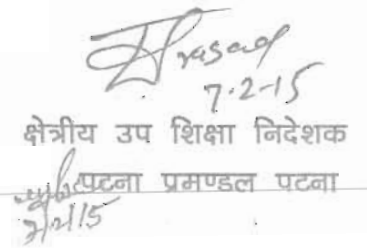 Prasad
7-2-15
क्षेत्रीय उप शिक्षा निदेशक
पटना प्रमण्डल पटना